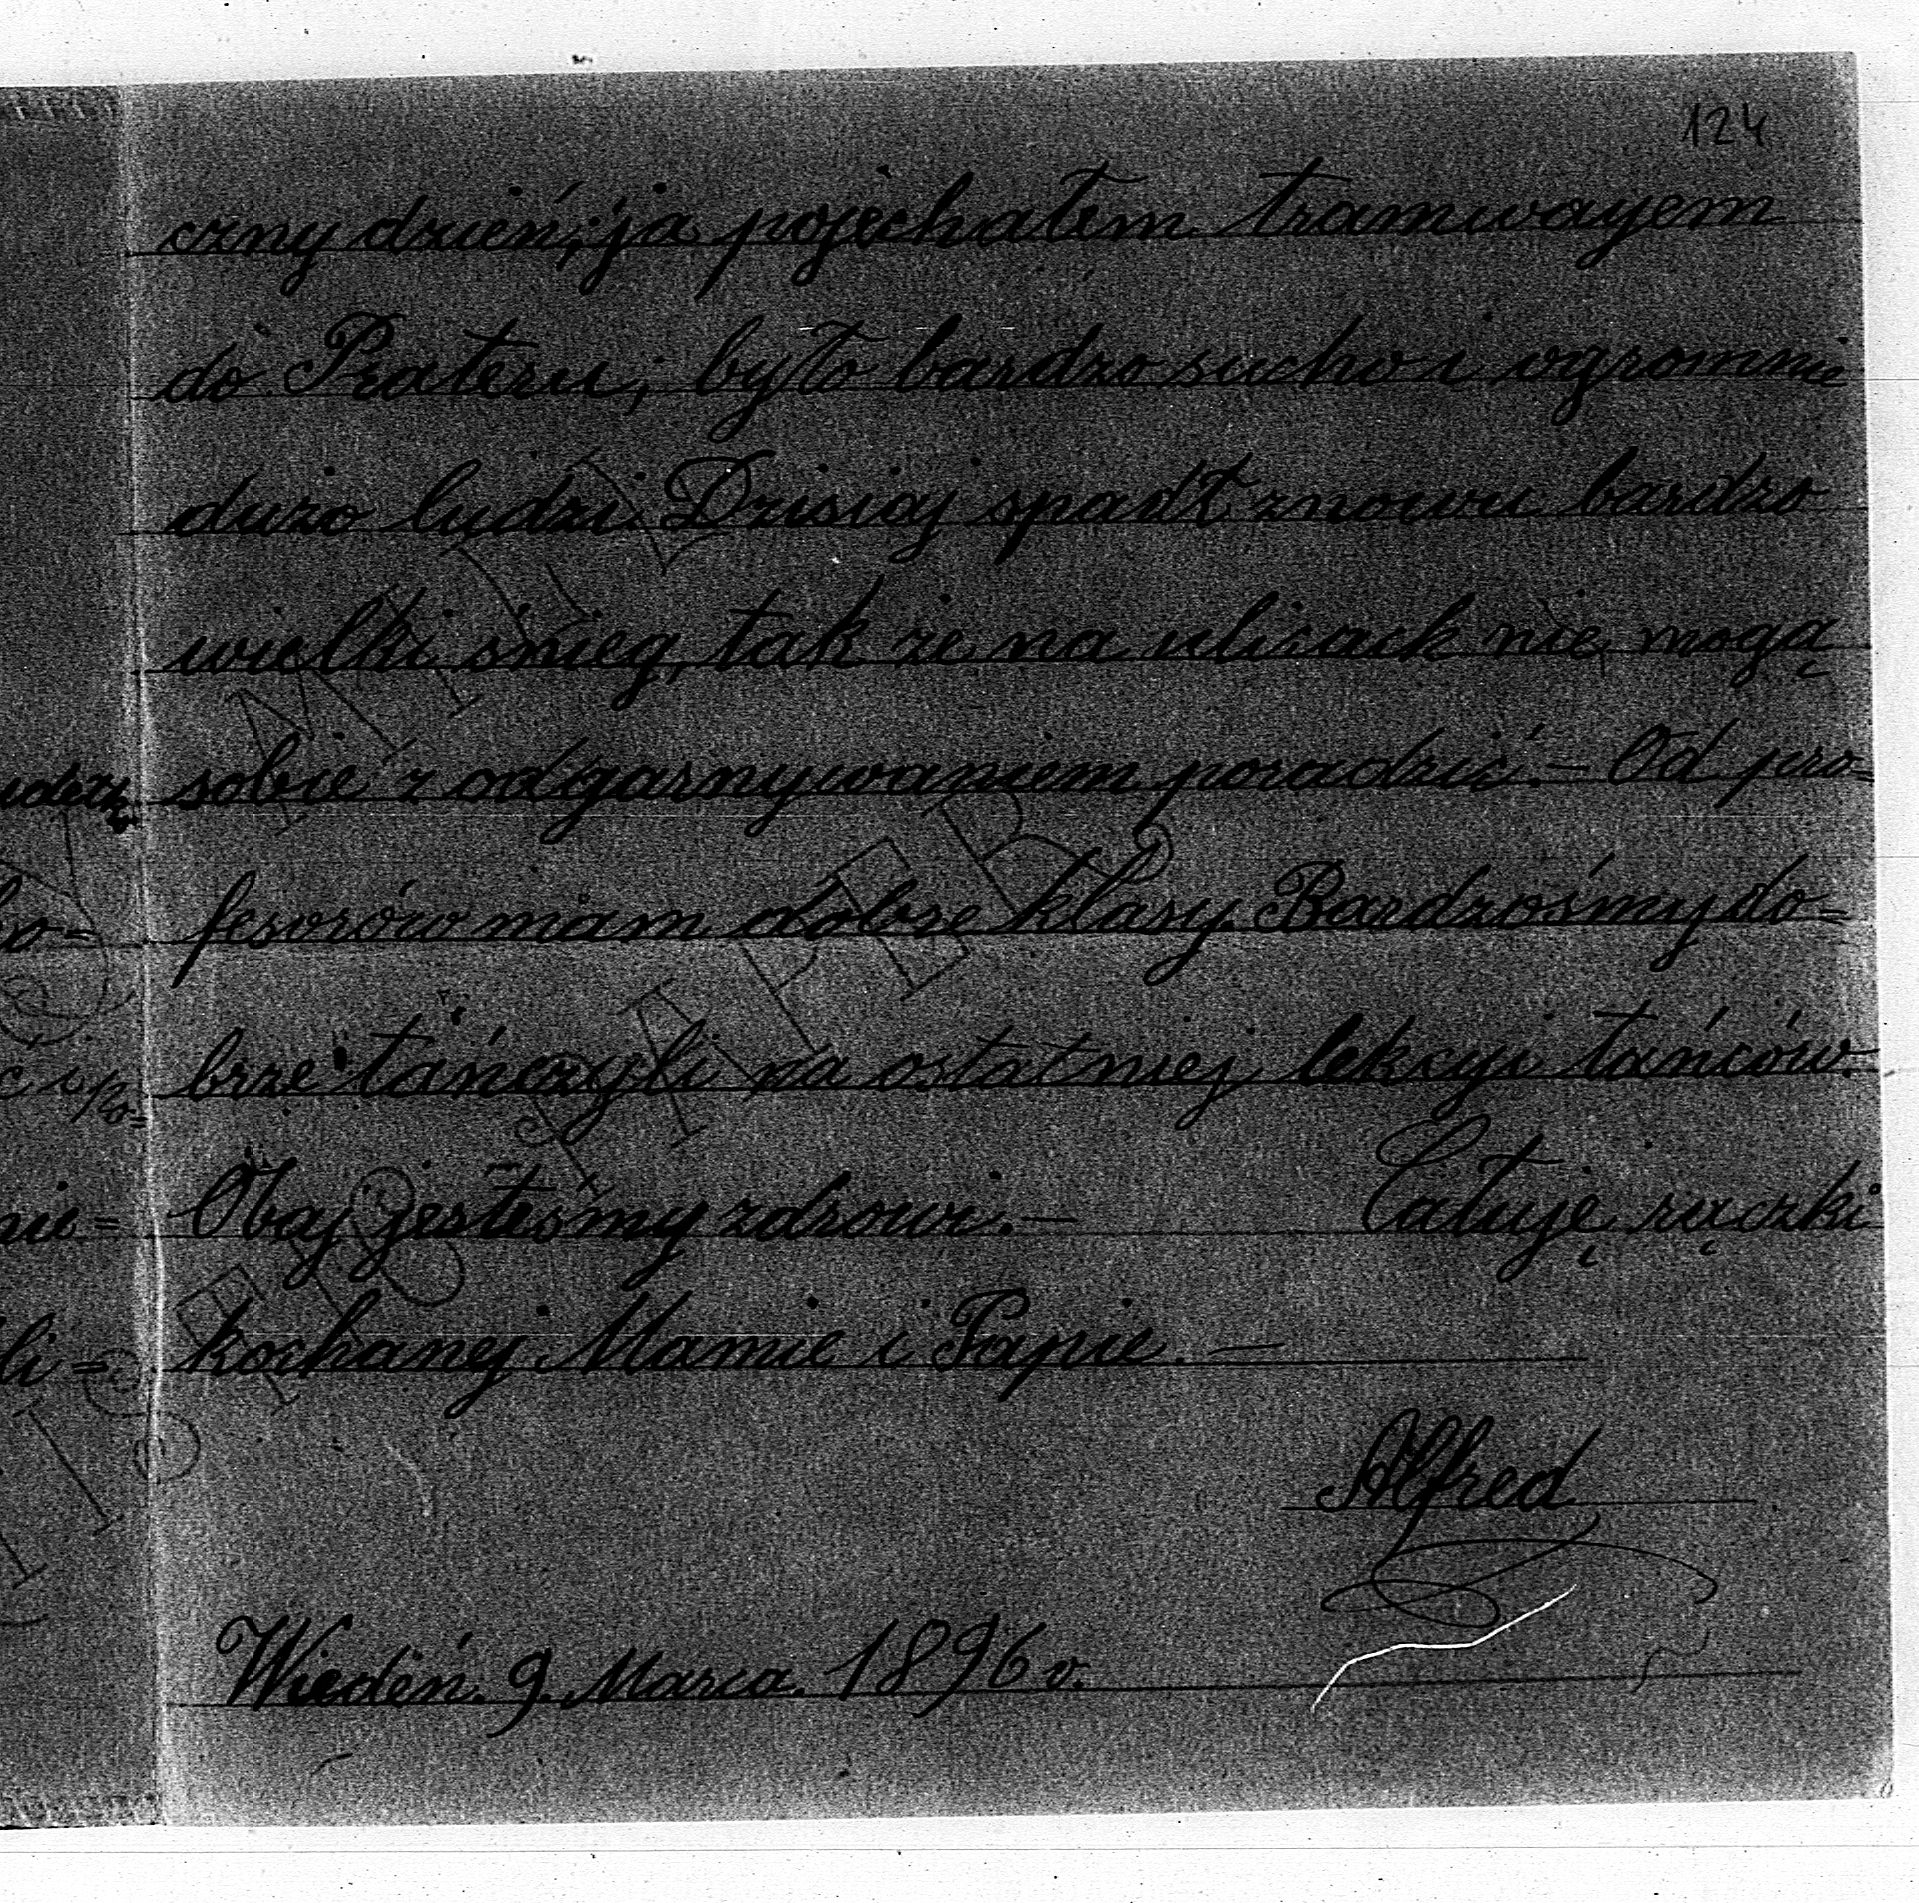 124
czny dzień; ja pojechałem tramwayem
do Prateru, było bardzo sucho i ogromnie
dużo ludzi. Dzisiaj spadł znowu bardzo
wielki śnieg, tak że na ulicach nie mogą
sobie z odgarnywaniem poradzić. – Od pro=
fesorów mam dobre klasy. Bardzośmy do=
brze tańczyli na ostatniej lekcyi tańców.
Obaj jesteśmy zdrowi. – Całuję rączki
kochanej Mamie i Papie. –
Alfred
Wiedeń. 9. Marca. 1896 r.